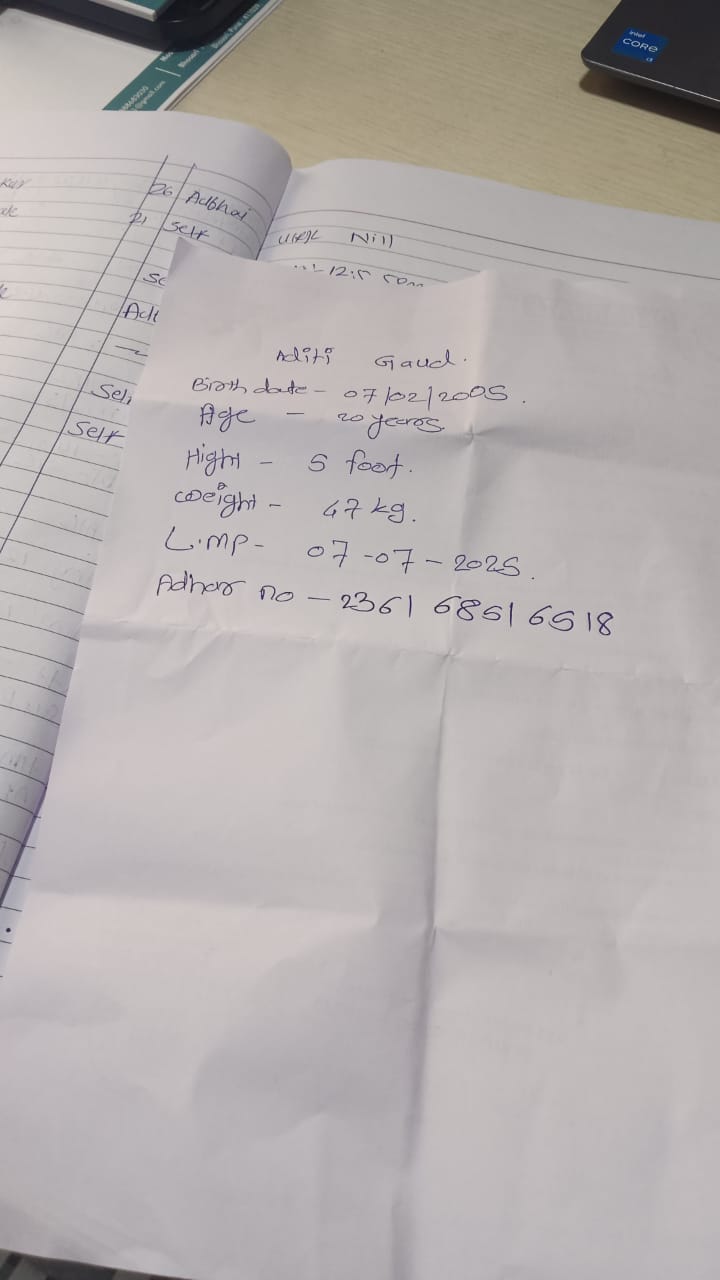 intel
CORE
i3
26 Adbhai
21 Self
Nill
Self
Self
Aditi Gaud.
Birth date - 07/02/2005.
Age - 20 years
Hight - 5 foot.
weight - 47 kg.
L.MP - 07-07-2025.
Adhar no - 2361 6851 6518